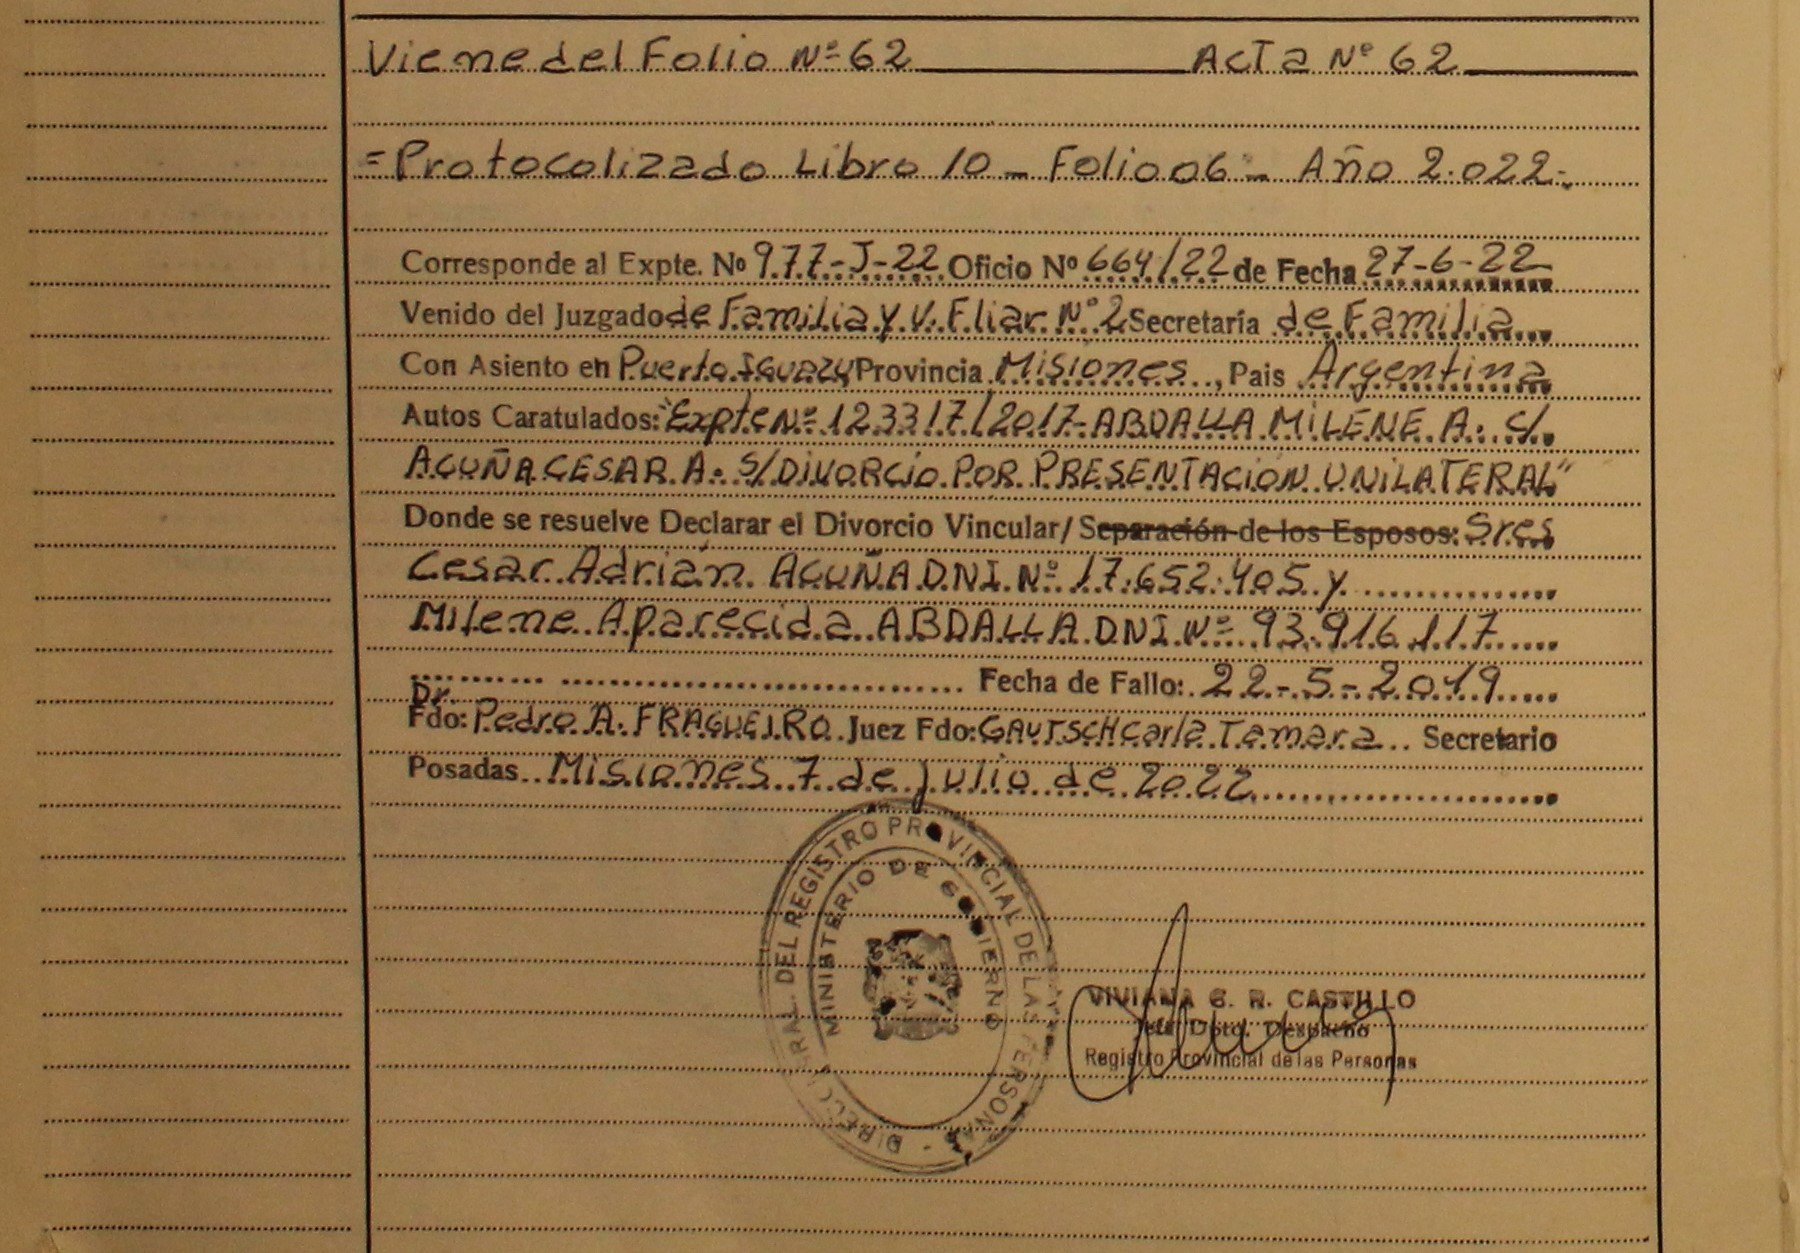 Viene del Folio Nº 62 Acta Nº 62
= Protocolizado Libro 10 - Folio 06 - Año 2.022-.
Corresponde al Expte. Nº 977-J-22 Oficio Nº 664/22 de Fecha 27-6-22
Venido del Juzgado de Familia y V. Fliar Nº 2 Secretaría de Familia
Con Asiento en Puerto Iguazú Provincia Misiones, Pais Argentina
Autos Caratulados: "Expte Nº 123317/2017-ABDALLA MILENE A. c/
ACUÑA CESAR A. S/DIVORCIO POR PRESENTACIÓN UNILATERAL"
Donde se resuelve Declarar el Divorcio Vincular/ Separación de los Esposos: Sres
Cesar Adrián ACUÑA DNI Nº 17.652.405 y
Milene Aparecida ABDALLA DNI Nº 93.916.117
Fecha de Fallo: 22-5-2019
Dr.
Fdo: Pedro A. FRAGUEIRO Juez Fdo: GAUTSCH Carla Tamara Secretario
Posadas Misiones 7 de julio de 2022
DIRECC. GRAL. DEL REGISTRO PROVINCIAL DE LAS PERSONAS -
MINISTERIO DE GOBIERNO
VIVIANA G. R. CASTILLO
Jefe Dpto. Despacho
Registro Provincial de las Personas